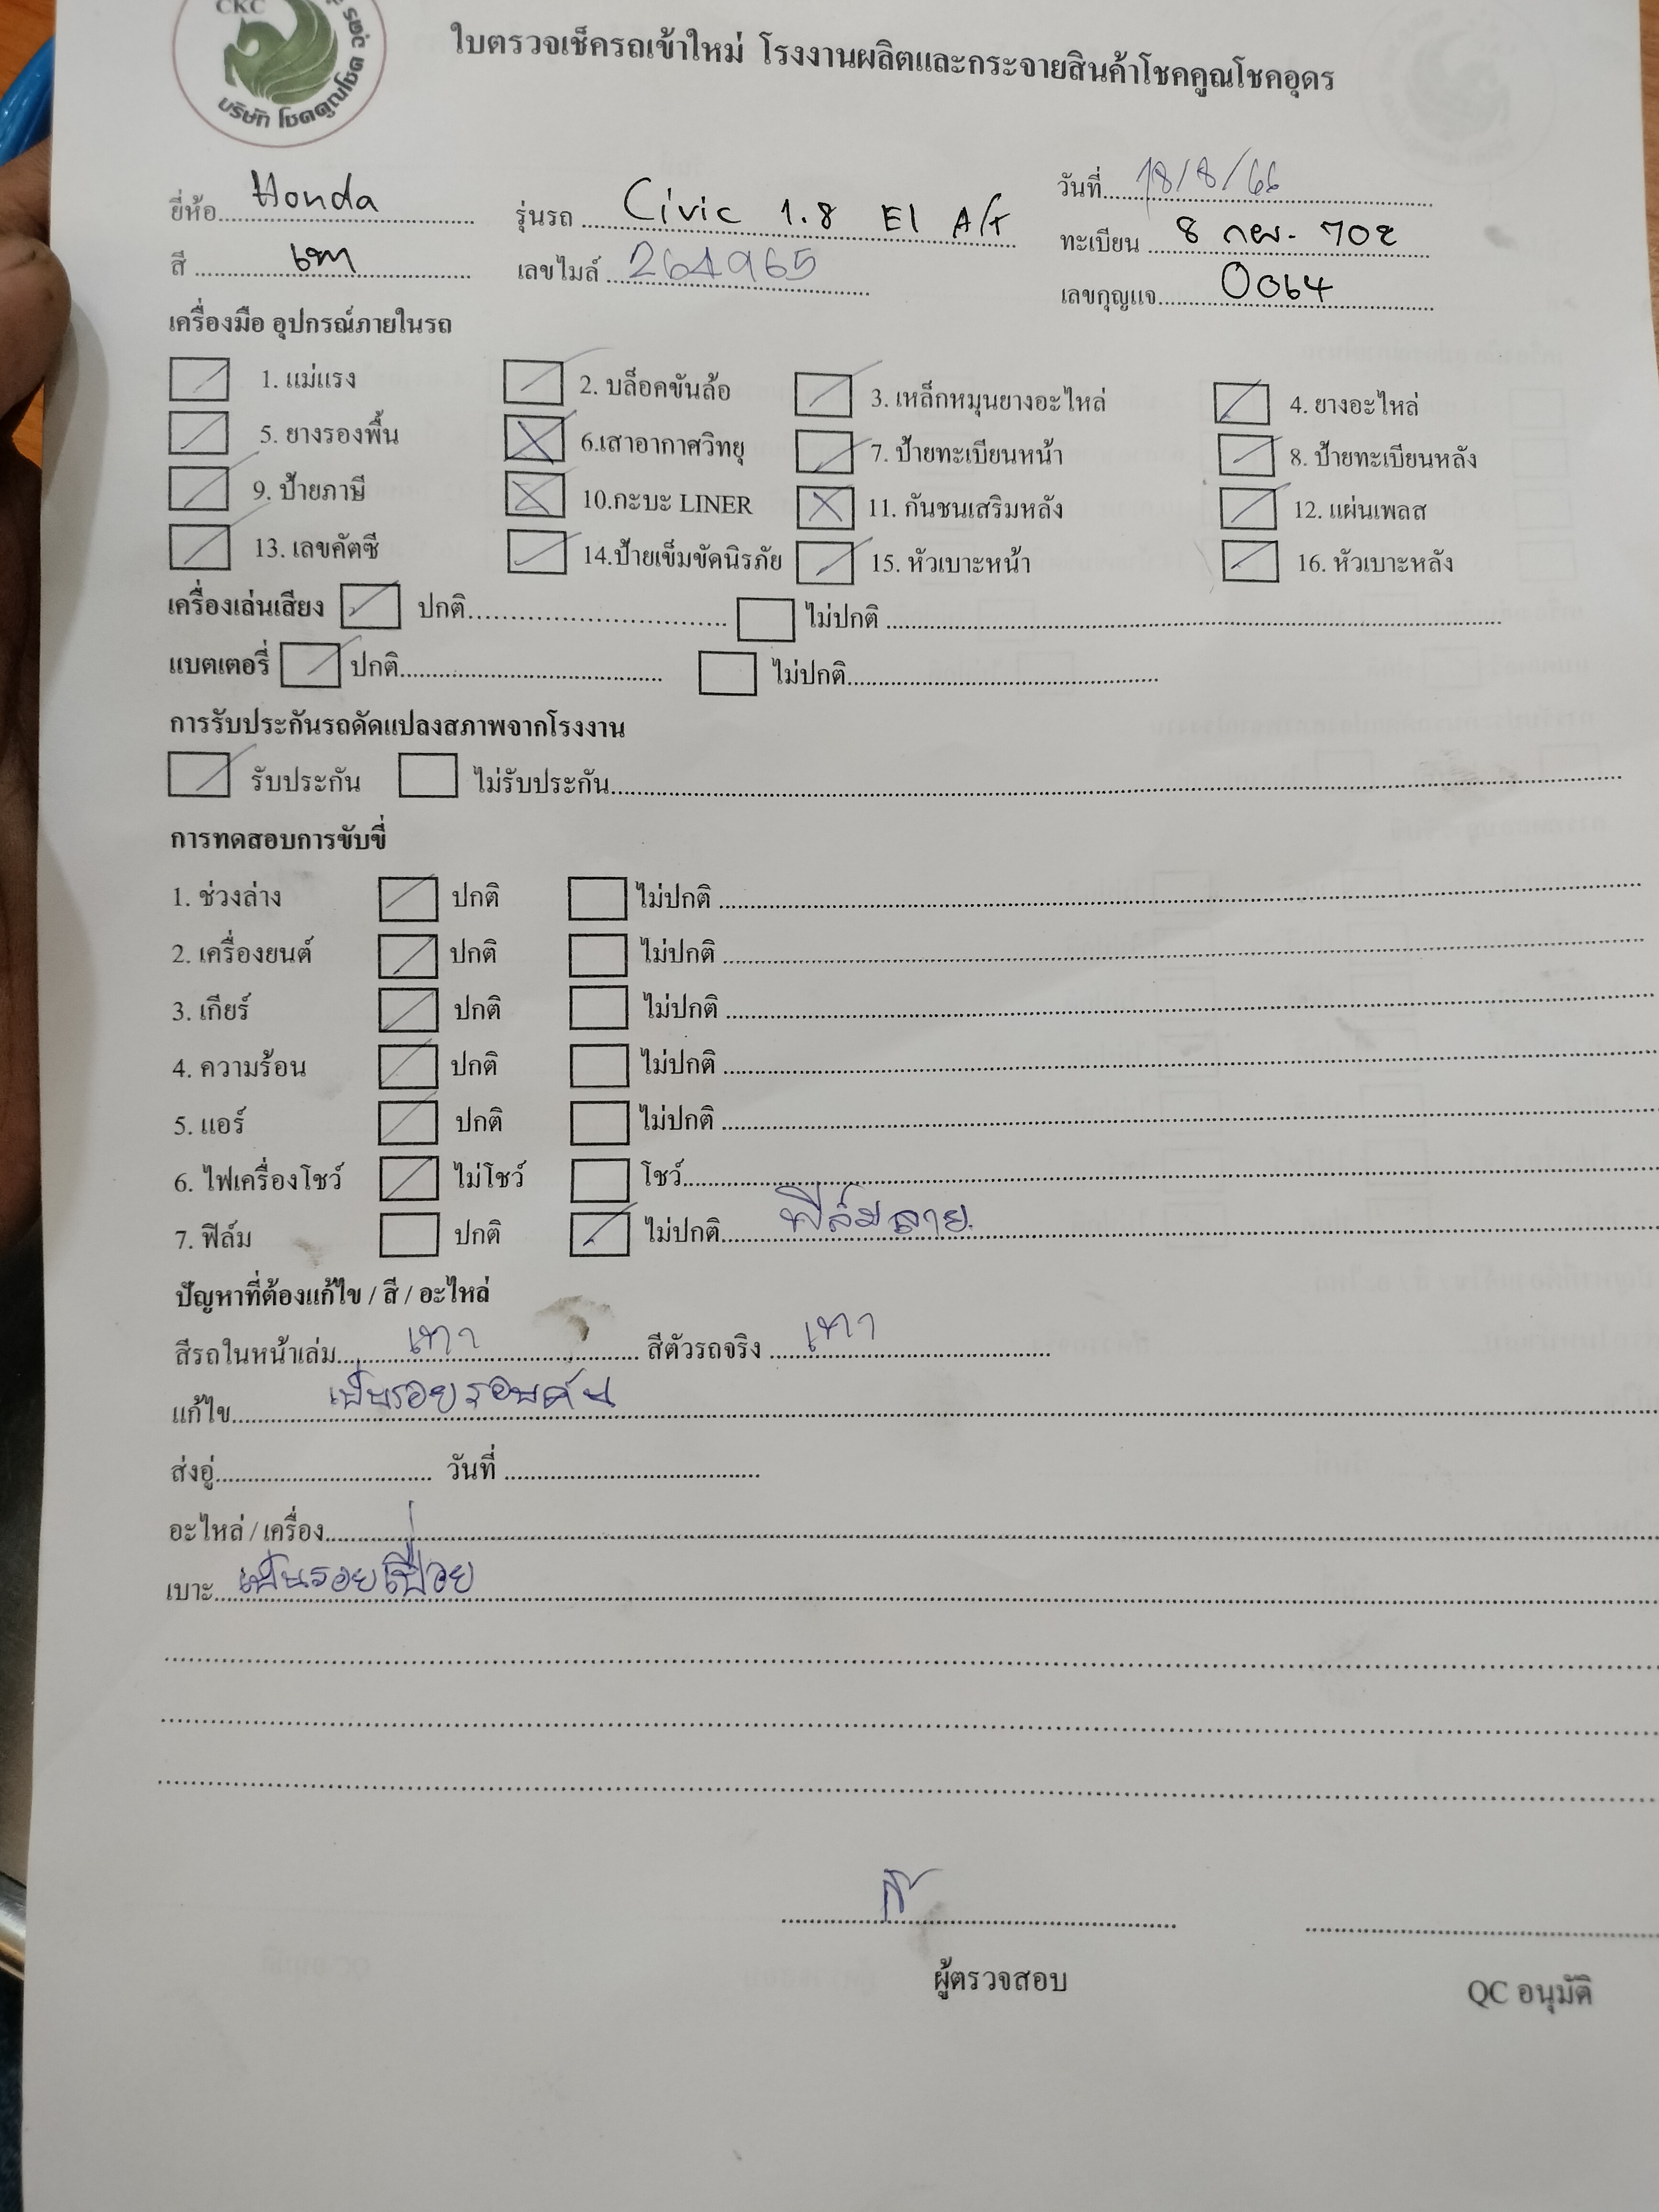 CKC
บริษัท โชคคูณโชค
ใบตรวจเช็ครถเข้าใหม่ โรงงานผลิตและกระจายสินค้าโชคคูณโชคอุดร
วันที่ 18/8/66
ยี่ห้อ Honda รุ่นรถ Civic 1.8 El A/T ทะเบียน 8 กผ. 702
สี เทา เลขไมล์ 264965 เลขกุญแจ 0064
เครื่องมือ อุปกรณ์ภายในรถ
1. แม่แรง 2. บล็อคขันล้อ 3. เหล็กหมุนยางอะไหล่ 4. ยางอะไหล่
5. ยางรองพื้น 6.เสาอากาศวิทยุ 7. ป้ายทะเบียนหน้า 8. ป้ายทะเบียนหลัง
9. ป้ายภาษี 10.กะบะ LINER 11. กันชนเสริมหลัง 12. แผ่นเพลส
13. เลขคัตซี 14.ป้ายเข็มขัดนิรภัย 15. หัวเบาะหน้า 16. หัวเบาะหลัง
เครื่องเล่นเสียง ปกติ ไม่ปกติ
แบตเตอรี่ ปกติ ไม่ปกติ
การรับประกันรถดัดแปลงสภาพจากโรงงาน
รับประกัน ไม่รับประกัน
การทดสอบการขับขี่
1. ช่วงล่าง ปกติ ไม่ปกติ
2. เครื่องยนต์ ปกติ ไม่ปกติ
3. เกียร์ ปกติ ไม่ปกติ
4. ความร้อน ปกติ ไม่ปกติ
5. แอร์ ปกติ ไม่ปกติ
6. ไฟเครื่องโชว์ ไม่โชว์ โชว์
7. ฟิล์ม ปกติ ไม่ปกติ ฟิล์มลาย
ปัญหาที่ต้องแก้ไข / สี / อะไหล่
สีรถในหน้าเล่ม เทา สีตัวรถจริง เทา
แก้ไข เป็นรอยรอบคัน
ส่งอู่ วันที่
อะไหล่ / เครื่อง
เบาะ เป็นรอยเปื่อย
ผู้ตรวจสอบ QC อนุมัติ